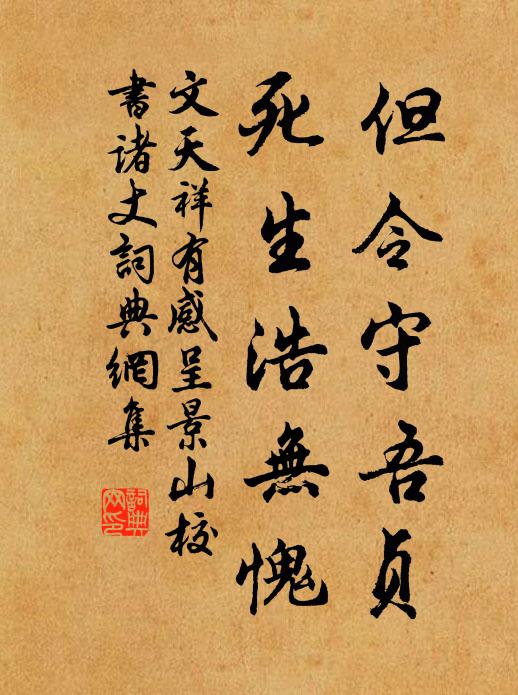 但令守吾貞
死生浩無愧
文天祥有感呈景山校
書諸丈詞典網集
詞典網印